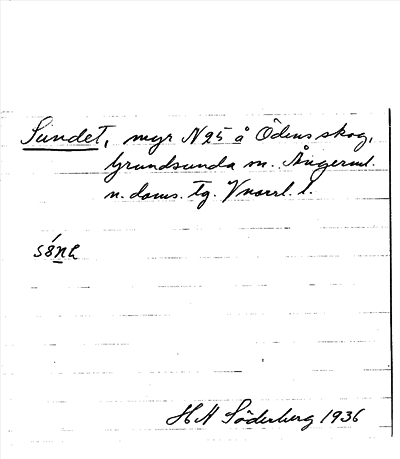 Sundet, myr N25 å Ödens skog,
Grundsunda sn. Ångerml.
n. doms. tg. Vnorrl. l.
H H Söderberg 1936